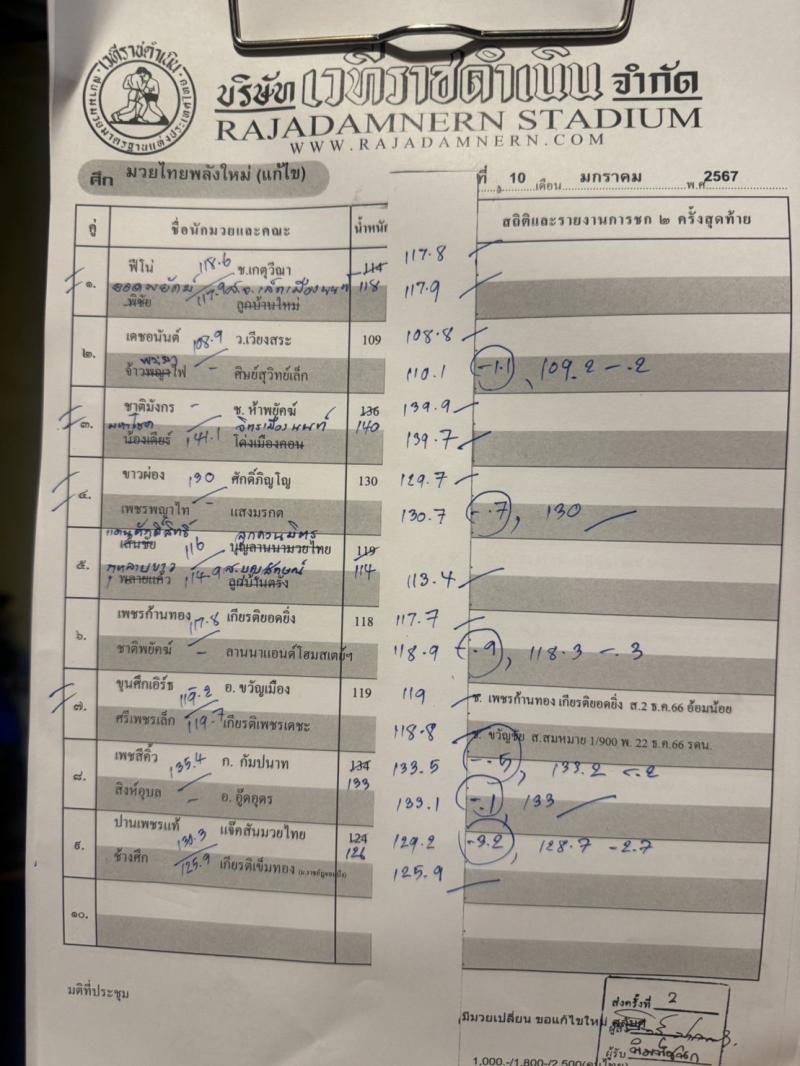 เวทีราชดำเนิน
บริษัท เวทีราชดำเนิน จำกัด
RAJADAMNERN STADIUM
WWW.RAJADAMNERN.COM
ศึก มวยไทยพลังใหม่ (แก้ไข) ที่ 10 เดือน มกราคม พ.ศ 2567
คู่ ชื่อนักมวยและคณะ น้ำหนัก สถิติและรายงานการชก ๒ ครั้งสุดท้าย
ฟีโน่ 118.6 ช.เกตุวีณา 114 117.8
๑. ยอดพยัคฆ์ 117.9 ส.จ.เล็กเมืองนนท์ 118 117.9
พิชัย ลูกบ้านใหม่
เดชอนันต์ 108.9 ว.เวียงสระ 109 108.8
๒. จ้าวพญาไฟ - ศิษย์สุวิทย์เล็ก 110.1 -1.1, 109.2 -.2
ชาติมังกร - ช. ห้าพยัคฆ์ 136 139.9
๓. มหาโชค 141.1 จิตรเมืองนนท์ 140 139.7
น้องเดียร์ โต่งเมืองคอน
ขาวผ่อง 130 ศักดิ์ภิญโญ 130 129.7
๔. เพชรพญาไท - แสงมรกต 130.7 -.7, 130
แดนศักดิ์สิทธิ์ ลูกสวนมิตร
๕. เส้นชัย 116 บุญลานนามวยไทย 119
กุหลาบขาว 114.9 ส.บุญลักษณ์ 114 113.4
พลายแก้ว
เพชรก้านทอง 117.8 เกียรติยอดยิ่ง 118 117.7
๖. ชาติพยัคฆ์ - ลานนาแอนด์โฮมสเตย์ฯ 118.9 -.9, 118.3 -.3
ขุนศึกเอิร์ธ 119.2 อ. ขวัญเมือง 119 119 ช. เพชรก้านทอง เกียรติยอดยิ่ง ส.2 ธ.ค.66 อ้อมน้อย
๗. ศรีเพชรเล็ก 119.7 เกียรติเพชรเดชะ 118.8 ช. ขวัญชัย ส.สมหมาย 1/900 พ. 22 ธ.ค.66 รดน.
เพชสีคิ้ว 135.4 ก. กัมปนาท 134 133.5 -.5, 133.2 -.2
๘. สิงห์อุบล - อ. อู๊ดอุดร 133 133.1 -.1, 133
ปานเพชรแท้ 130.3 แจ๊คสันมวยไทย 124 129.2 -3.2, 128.7 -2.7
๙. ช้างศึก 125.9 เกียรติเข็มทอง 126 125.9
๑๐.
มติที่ประชุม
ส่งครั้งที่ 2
มีมวยเปลี่ยน ขอแก้ไขใหม่
ผู้รับ
1,000.-/1,800-/2,500